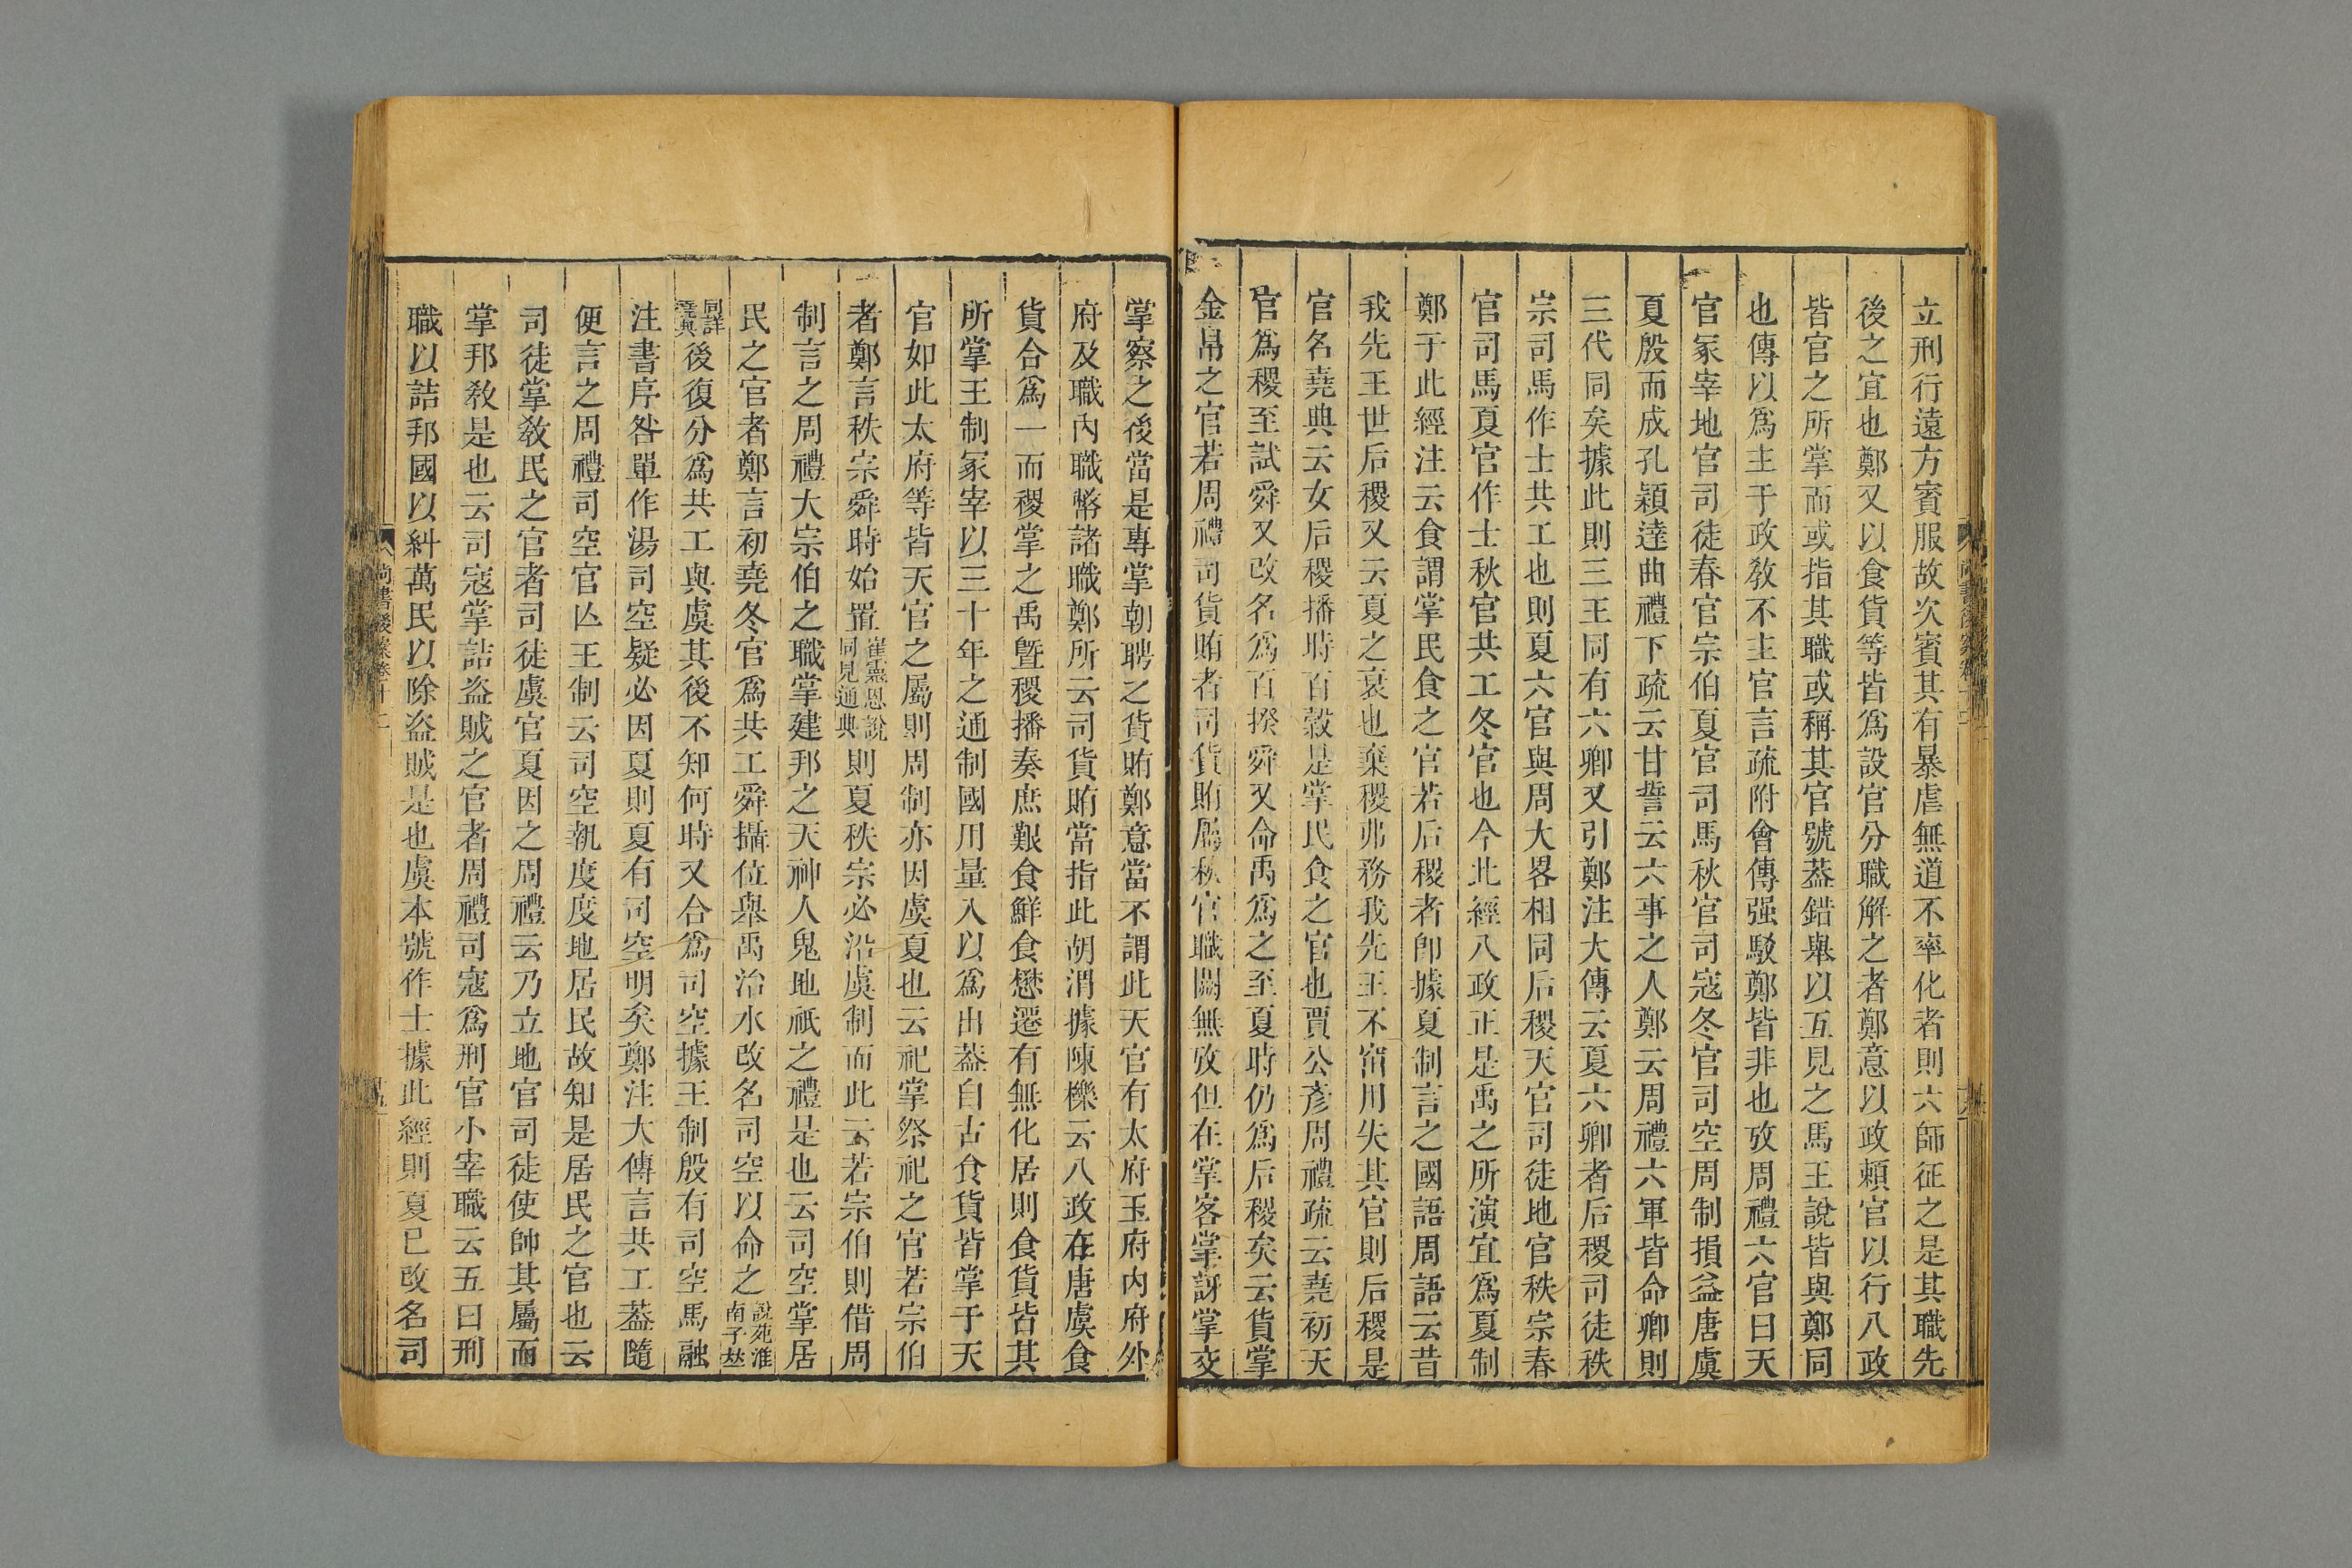 立刑行遠方賓服故次賓其有暴虐無道不率化者則六師征之是其職先
後之宜也鄭又以食貨等皆爲設官分職解之者鄭意以政頼官以行八政
皆官之所掌而或指其職或稱其官號葢錯舉以互見之馬王說皆與鄭同
也傳以爲主于政敎不主官言疏附會傳强駁鄭皆非也攷周禮六官曰天
官冢宰地官司徒春官宗伯夏官司馬秋官司寇冬官司空周制損益唐虞
夏殷而成孔穎達曲禮下疏云甘誓云六事之人鄭云周禮六軍皆命卿則
三代同矣據此則三王同有六卿又引鄭注大傳云夏六卿者后稷司徒秩
宗司馬作士共工也則夏六官與周大畧相同后稷天官司徒地官秩宗春
官司馬夏官作士秋官共工冬官也今此經八政正是禹之所演宜爲夏制
鄭于此經注云食謂掌民食之官若后稷者卽據夏制言之國語周語云昔
我先王世后稷又云夏之衰也棄稷弗務我先王不窋用失其官則后稷是
官名堯典云女后稷播時百穀是掌民食之官也賈公彥周禮疏云堯初天
官爲稷至試舜又改名爲百揆舜又命禹爲之至夏時仍爲后稷矣云貨掌
金帛之官若周禮司貨賄者司貨賄屬秋官職闕無攷但在掌客掌訝掌交
掌察之後當是專掌朝聘之貨賄鄭意當不謂此天官有太府玉府内府外
府及職内職幣諸職鄭所云司貨賄當指此胡渭據陳櫟云八政在唐虞食
貨合爲一而稷掌之禹暨稷播奏庶艱食鮮食懋遷有無化居則食貨皆其
所掌王制冢宰以三十年之通制國用量入以爲出葢自古食貨皆掌于天
官如此太府等皆天官之屬則周制亦因虞夏也云祀掌祭祀之官若宗伯
者鄭言秩宗舜時始置崔靈恩說同見通典則夏秩宗必沿虞制而此云若宗伯則借周
制言之周禮大宗伯之職掌建邦之天神人鬼地祇之禮是也云司空掌居
民之官者鄭言初堯冬官爲共工舜攝位舉禹治水改名司空以命之說苑淮南子𠀤
同詳堯典後復分爲共工與虞其後不知何時又合爲司空據王制殷有司空馬融
注書序咎單作湯司空疑必因夏則夏有司空明矣鄭注大傳言共工葢隨
便言之周禮司空官亾王制云司空執度度地居民故知是居民之官也云
司徒掌敎民之官者司徒虞官夏因之周禮云乃立地官司徒使帥其屬而
掌邦敎是也云司寇掌詰盜賊之官者周禮司寇爲刑官小宰職云五曰刑
職以詰邦國以糾萬民以除盜賊是也虞本號作士據此經則夏已改名司
尚書後案卷十二